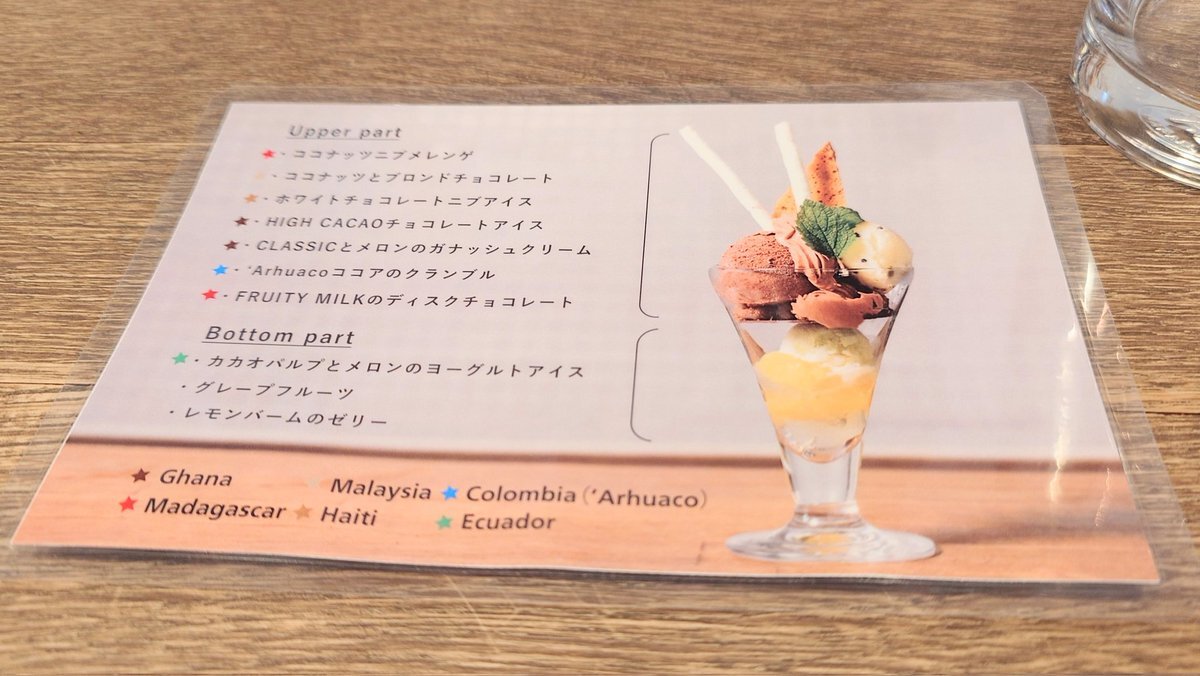 Upper part
★・ココナッツニブメレンゲ
★・ココナッツとブロンドチョコレート
★・ホワイトチョコレートニブアイス
★・HIGH CACAOチョコレートアイス
★・CLASSICとメロンのガナッシュクリーム
★・'Arhuacoココアのクランブル
★・FRUITY MILKのディスクチョコレート
Bottom part
★・カカオパルプとメロンのヨーグルトアイス
・グレープフルーツ
・レモンバームのゼリー
★ Ghana ★ Malaysia ★ Colombia('Arhuaco)
★ Madagascar ★ Haiti ★ Ecuador